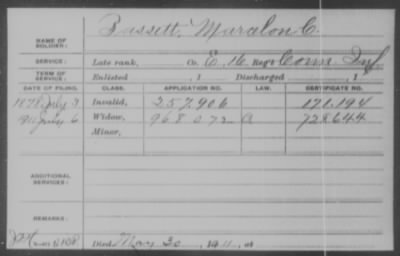 NAME OF SOLDIER: Bassett, Maralon C.
SERVICE: Late rank, Co. E, 16 Reg't Conn. Inf.
TERM OF SERVICE: Enlisted , 1 Discharged , 1
DATE OF FILING. CLASS. APPLICATION NO. LAW. CERTIFICATE NO.
1878 July 3 Invalid, 257.906 171.194
1911 July 6 Widow, 968 072 a 728644
Minor,
ADDITIONAL SERVICES:
REMARKS:
Died May 30, 1911, at